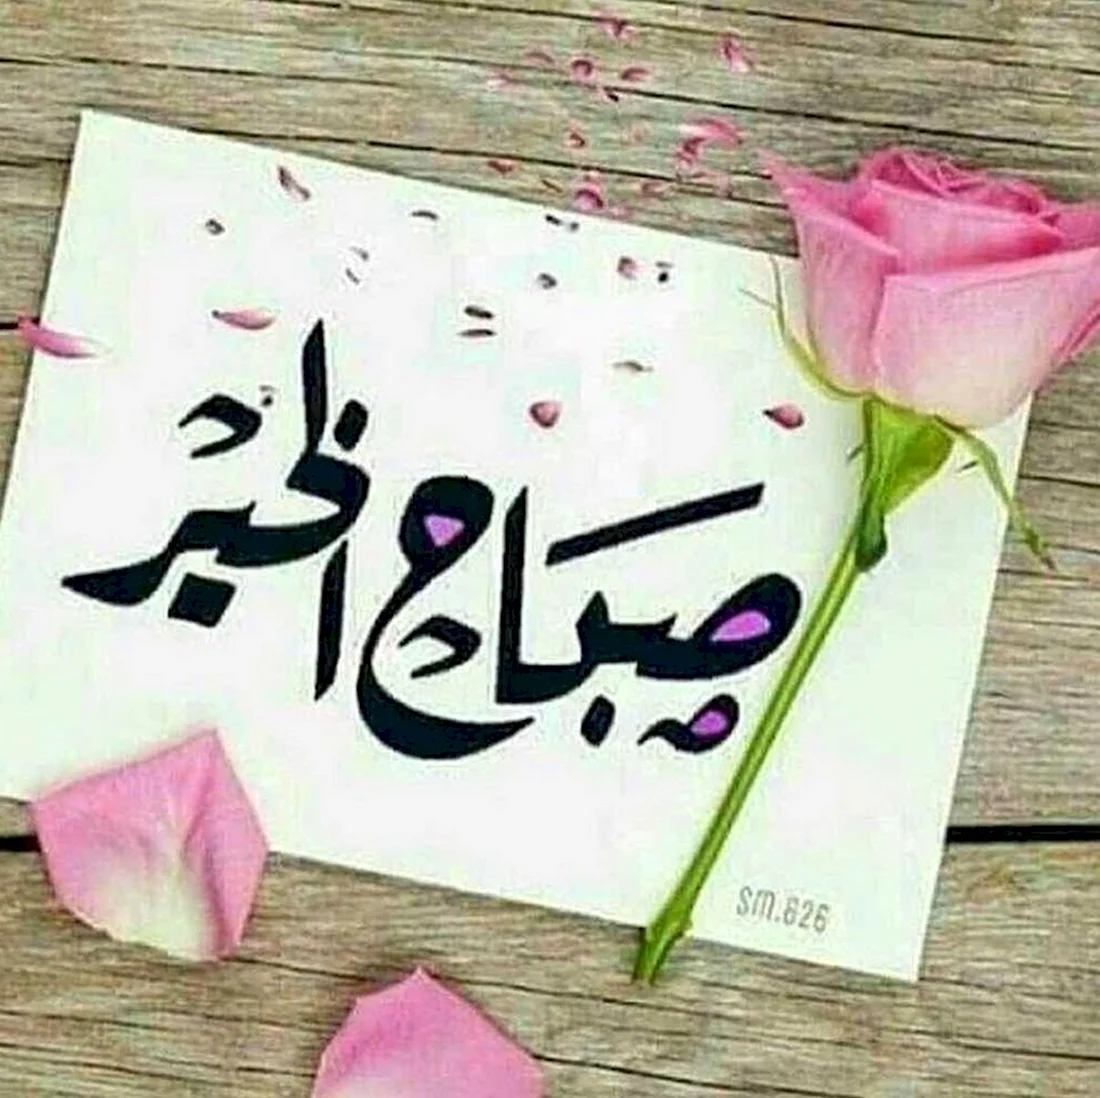 صباح الخير
sm.626